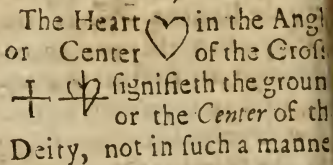 The Heart in the Angl
or Center of the Croſs
ſignifieth the groun
or the Center of th
Deity, not in ſuch a manne